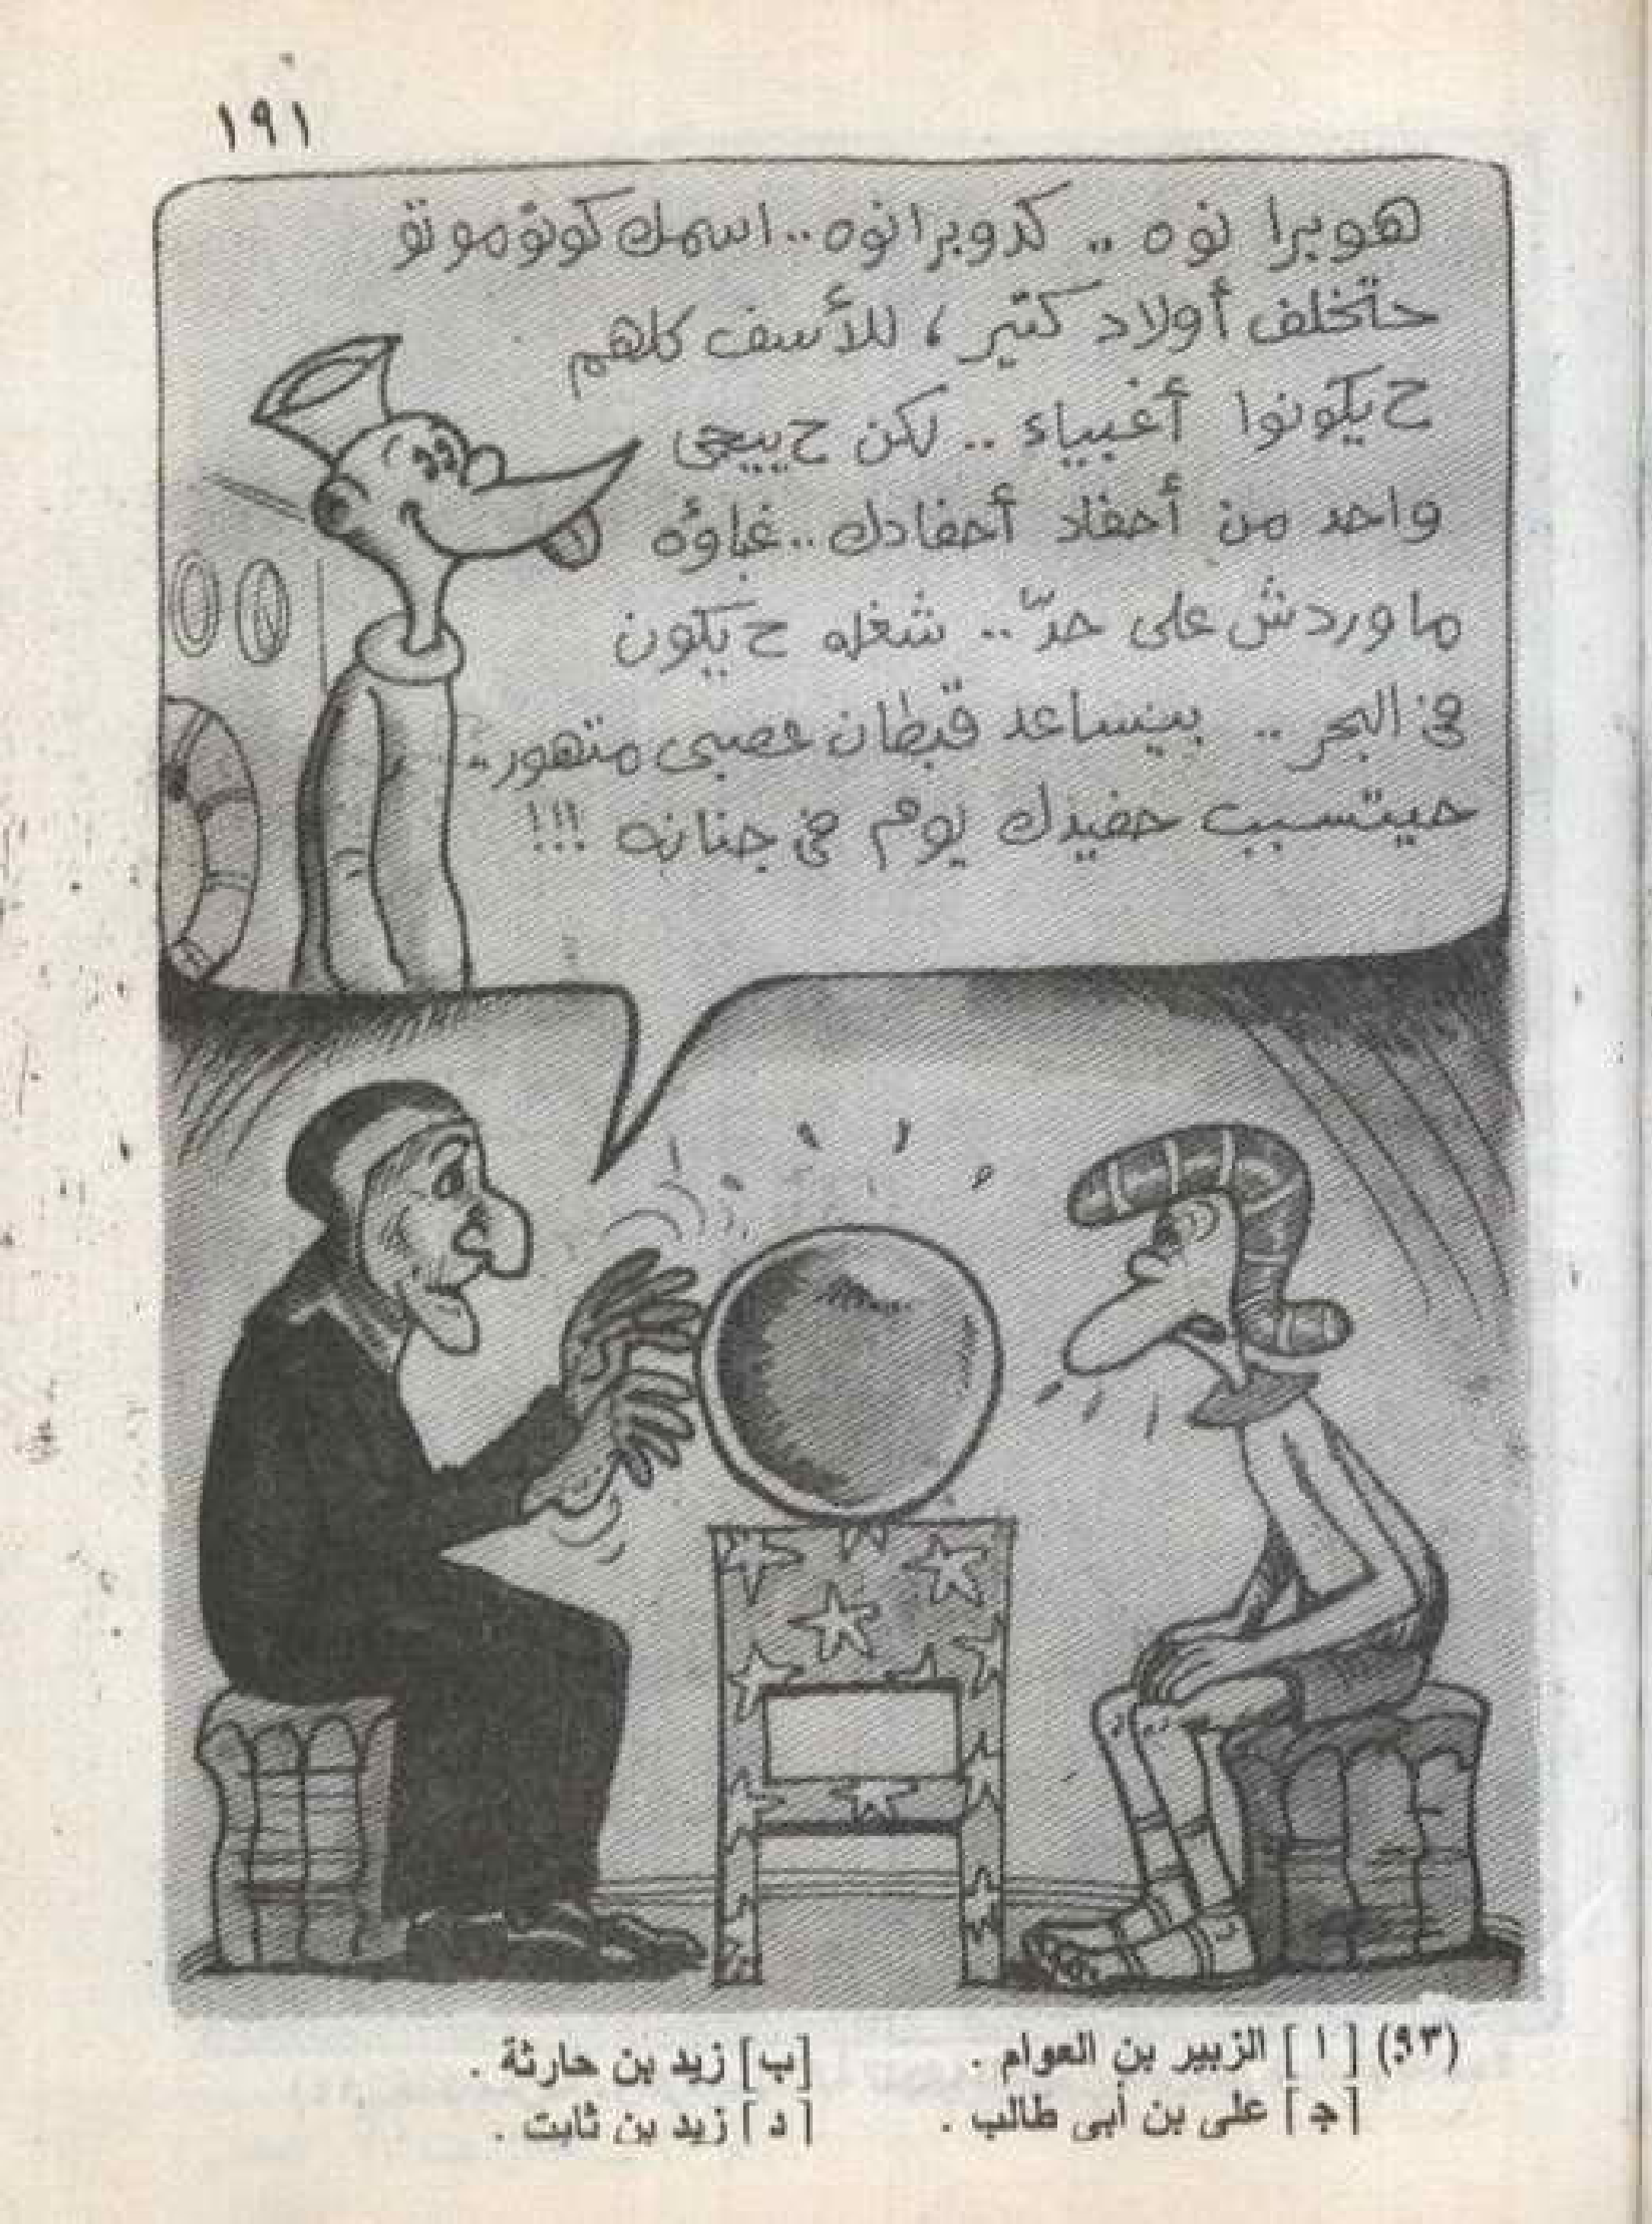 ١٩١
هوبرا نوه .. كدوبرانوه .. اسمك كوتوموتو
حتخلف أولاد كتير ، للأسف كلهم
ح يكونوا أغبياء .. لكن ح ييجى
واحد من أحفاد أحفادك .. غباؤه
ماوردش على حدّ .. شغله ح يكون
فى البحر .. بيساعد قبطان عصبى متهور ..
حيتسبب حفيدك يوم فى جنانه !!!
(٩٣) [ ا ] الزبير بن العوام . [ب] زيد بن حارثة .
[ جـ ] على بن أبى طالب . [ د ] زيد بن ثابت .